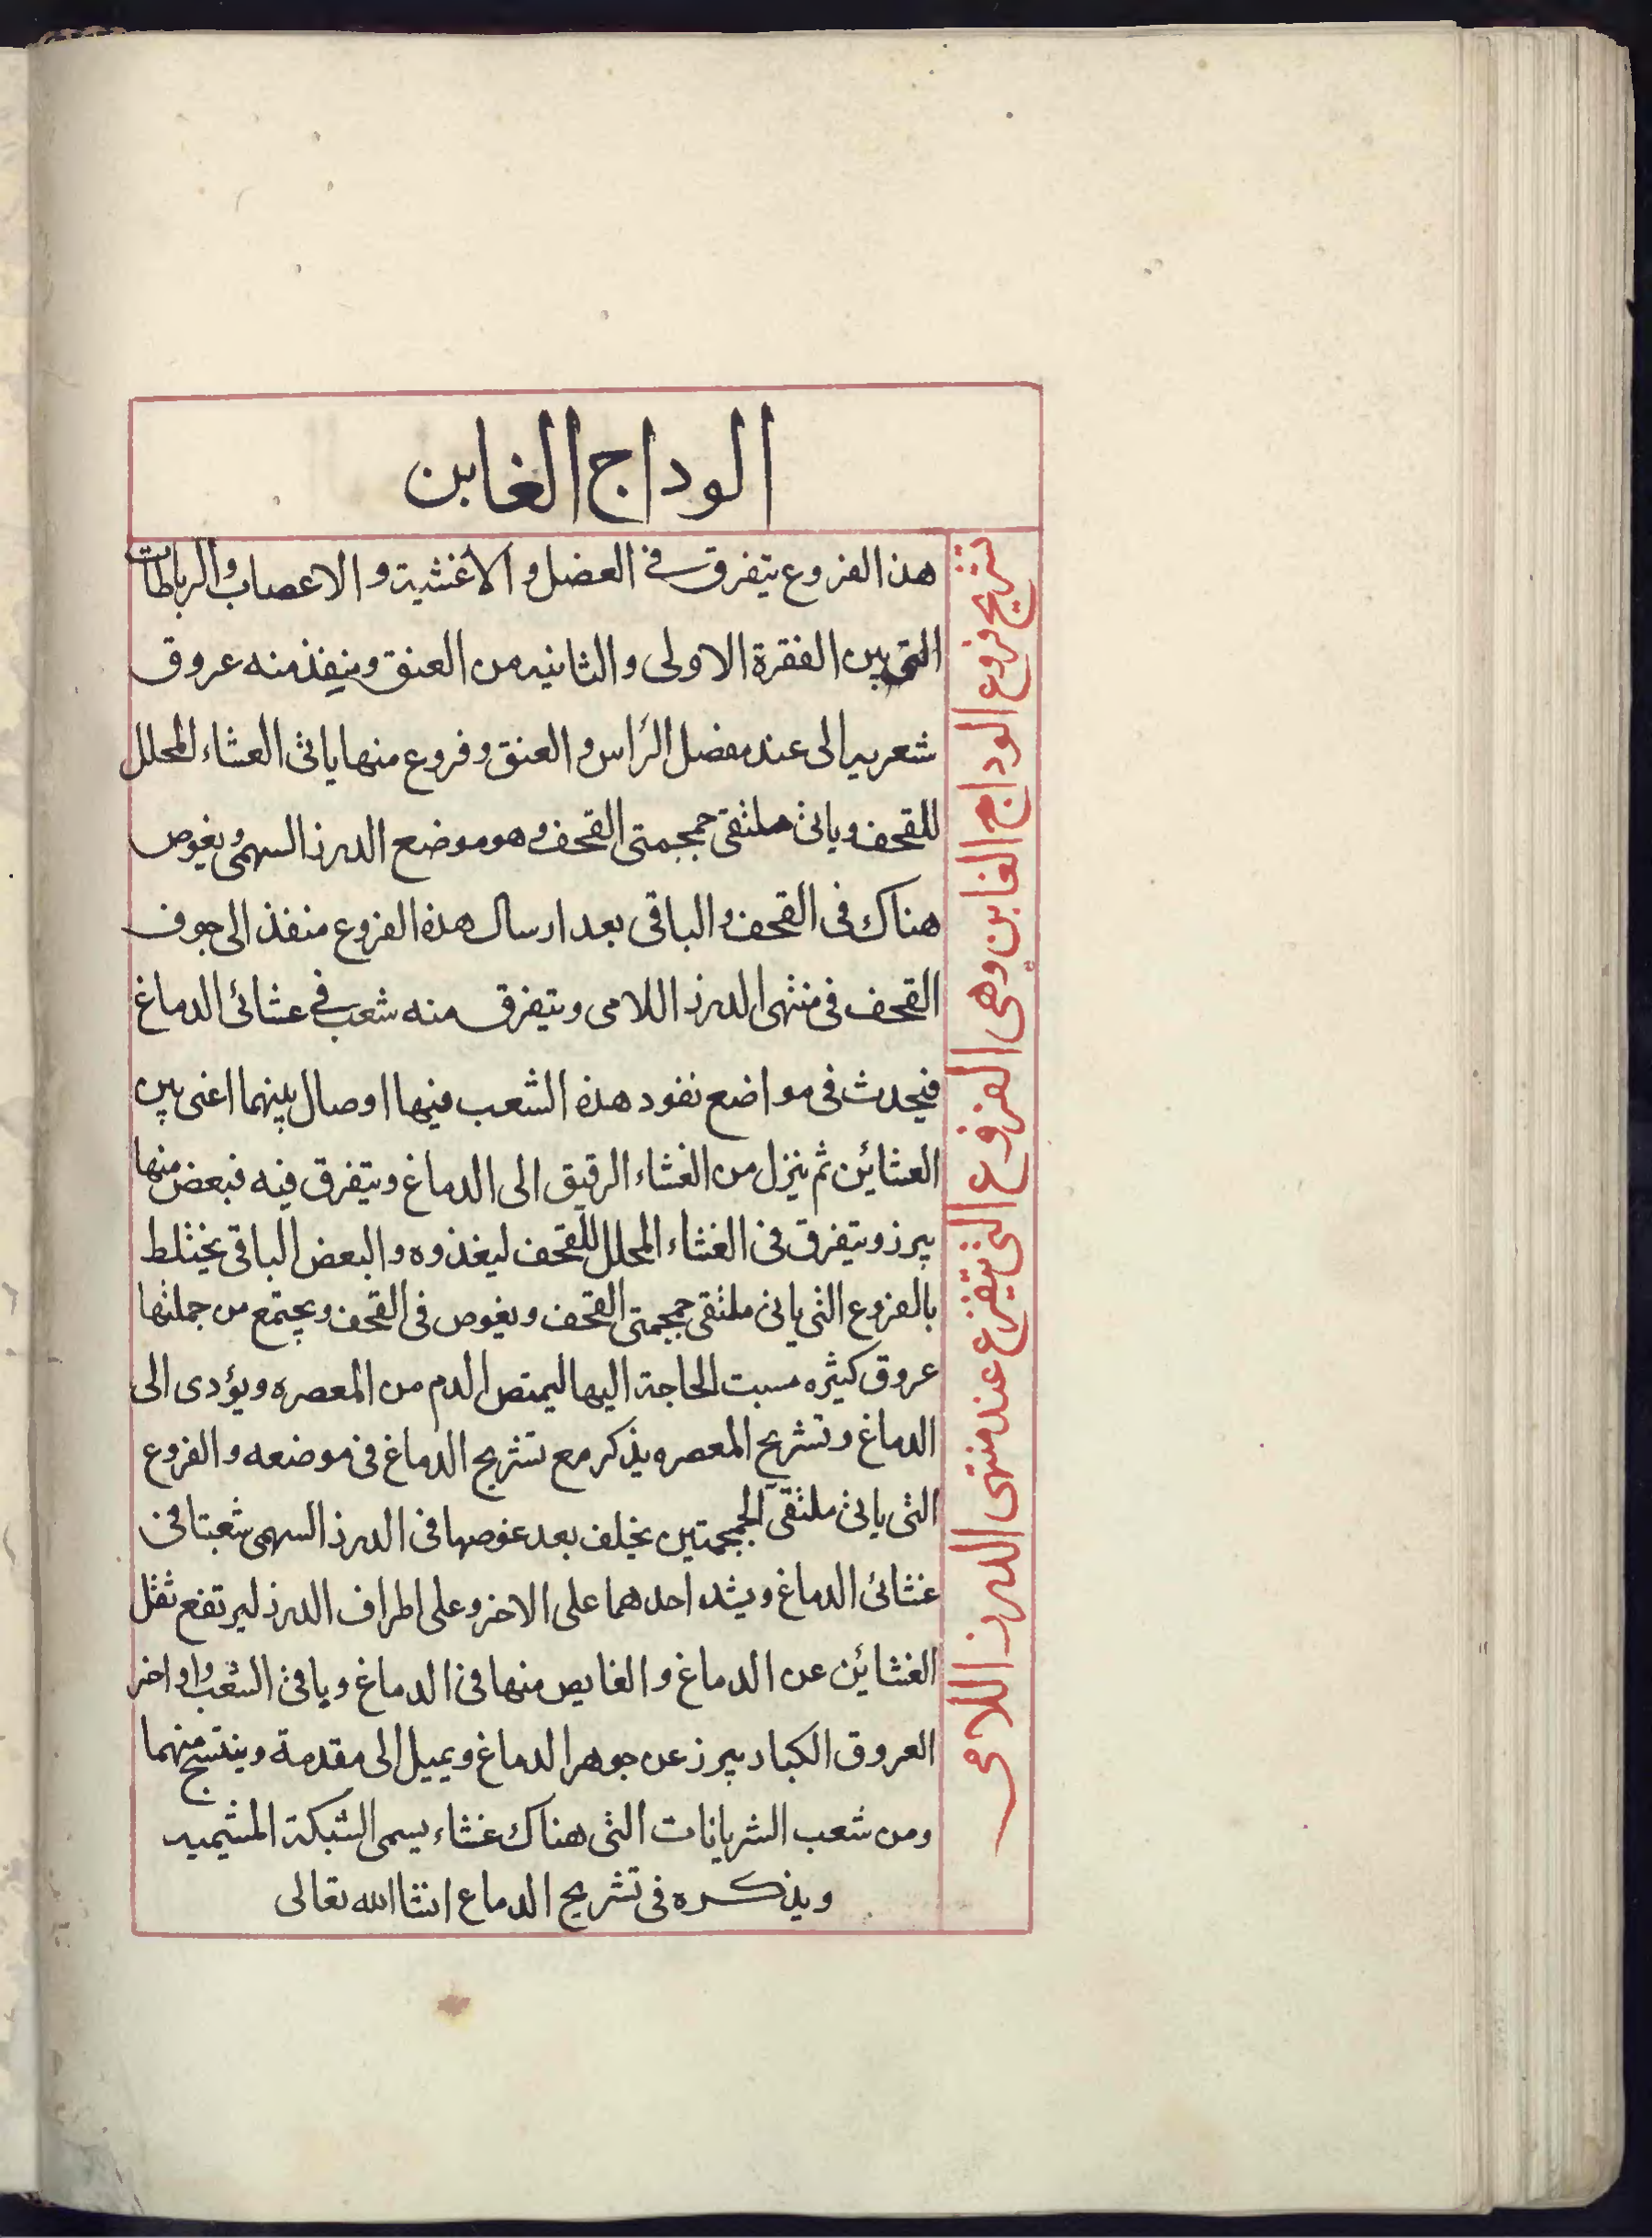 الوداج الغابن
تشريح فروع الوداج الغابن وهى الفروع التى تتفرع عند منتهى الدرز اللامى
هذا الفروع يتفرق فى العضل والاغشية والاعصاب والرباطات
التى بين الفقرة الاولى والثانيه من العنق وينفذ منه عروق
شعريه الى عند مفصل الرأس والعنق وفروع منها ياتى الغشاء المحلل
للقحف وياتى ملتقى جمجمتى القحف وهو موضع الدرز السهمى ويغوص
هناك فى القحف والباقى بعد ارسال هذه الفروع منفذ الى جوف
القحف فى منتهى الدرز اللامى ويتفرق منه شعب فى عشائى الدماغ
فيحدث فى مواضع نفود هذه الشعب فيها اوصال بينهما اعنى بين
العشائين ثم ينزل من الغشاء الرقيق الى الدماغ ويتفرق فيه فبعض منها
يبرز ويتفرق فى الغشاء المحلل للقحف ليغذوه والبعض الباقى يختلط
بالفروع التى ياتى ملتقى جمجمتى القحف ويغوص فى القحف ويجتمع من جملتها
عروق كثيره مسبت الحاجة اليها ليمتص الدم من المعصره ويؤدى الى
الدماغ وتشريح المعصره يذكر مع تشريح الدماغ فى موضعه والفروع
التى ياتى ملتقى الجمجمتين يخلف بعد غوصها فى الدرز السهمى شعبتا فى
غشائى الدماغ ويشد احدهما على الاخر وعلى اطراف الدرز ليرتفع ثقل
الغشائين عن الدماغ والغايص منها فى الدماغ وياقى الشعب واواخر
العروق الكبار يبرز عن جوهر الدماغ ويميل الى مقدمة وينتسج منهما
ومن شعب الشريانات التى هناك غشاء يسمى الشبكة المشيميه
ويذكره فى تشريح الدماع انشا الله تعالى